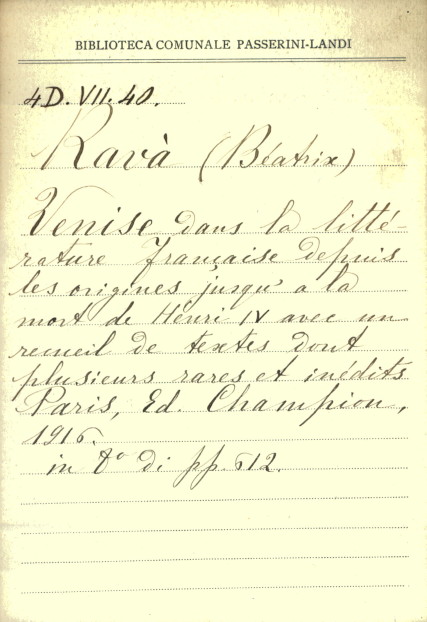 BIBLIOTECA COMUNALE PASSERINI-LANDI
4D. VII. 40.
Ravà (Béatrix)
Venise dans la litté-
rature française depuis
les origines jusqu' a la
mort de Henri IV avec un
recueil de textes dont
plusieurs rares et inédits
Paris, Ed. Champion,
1916.
in 8° di pp. 612.